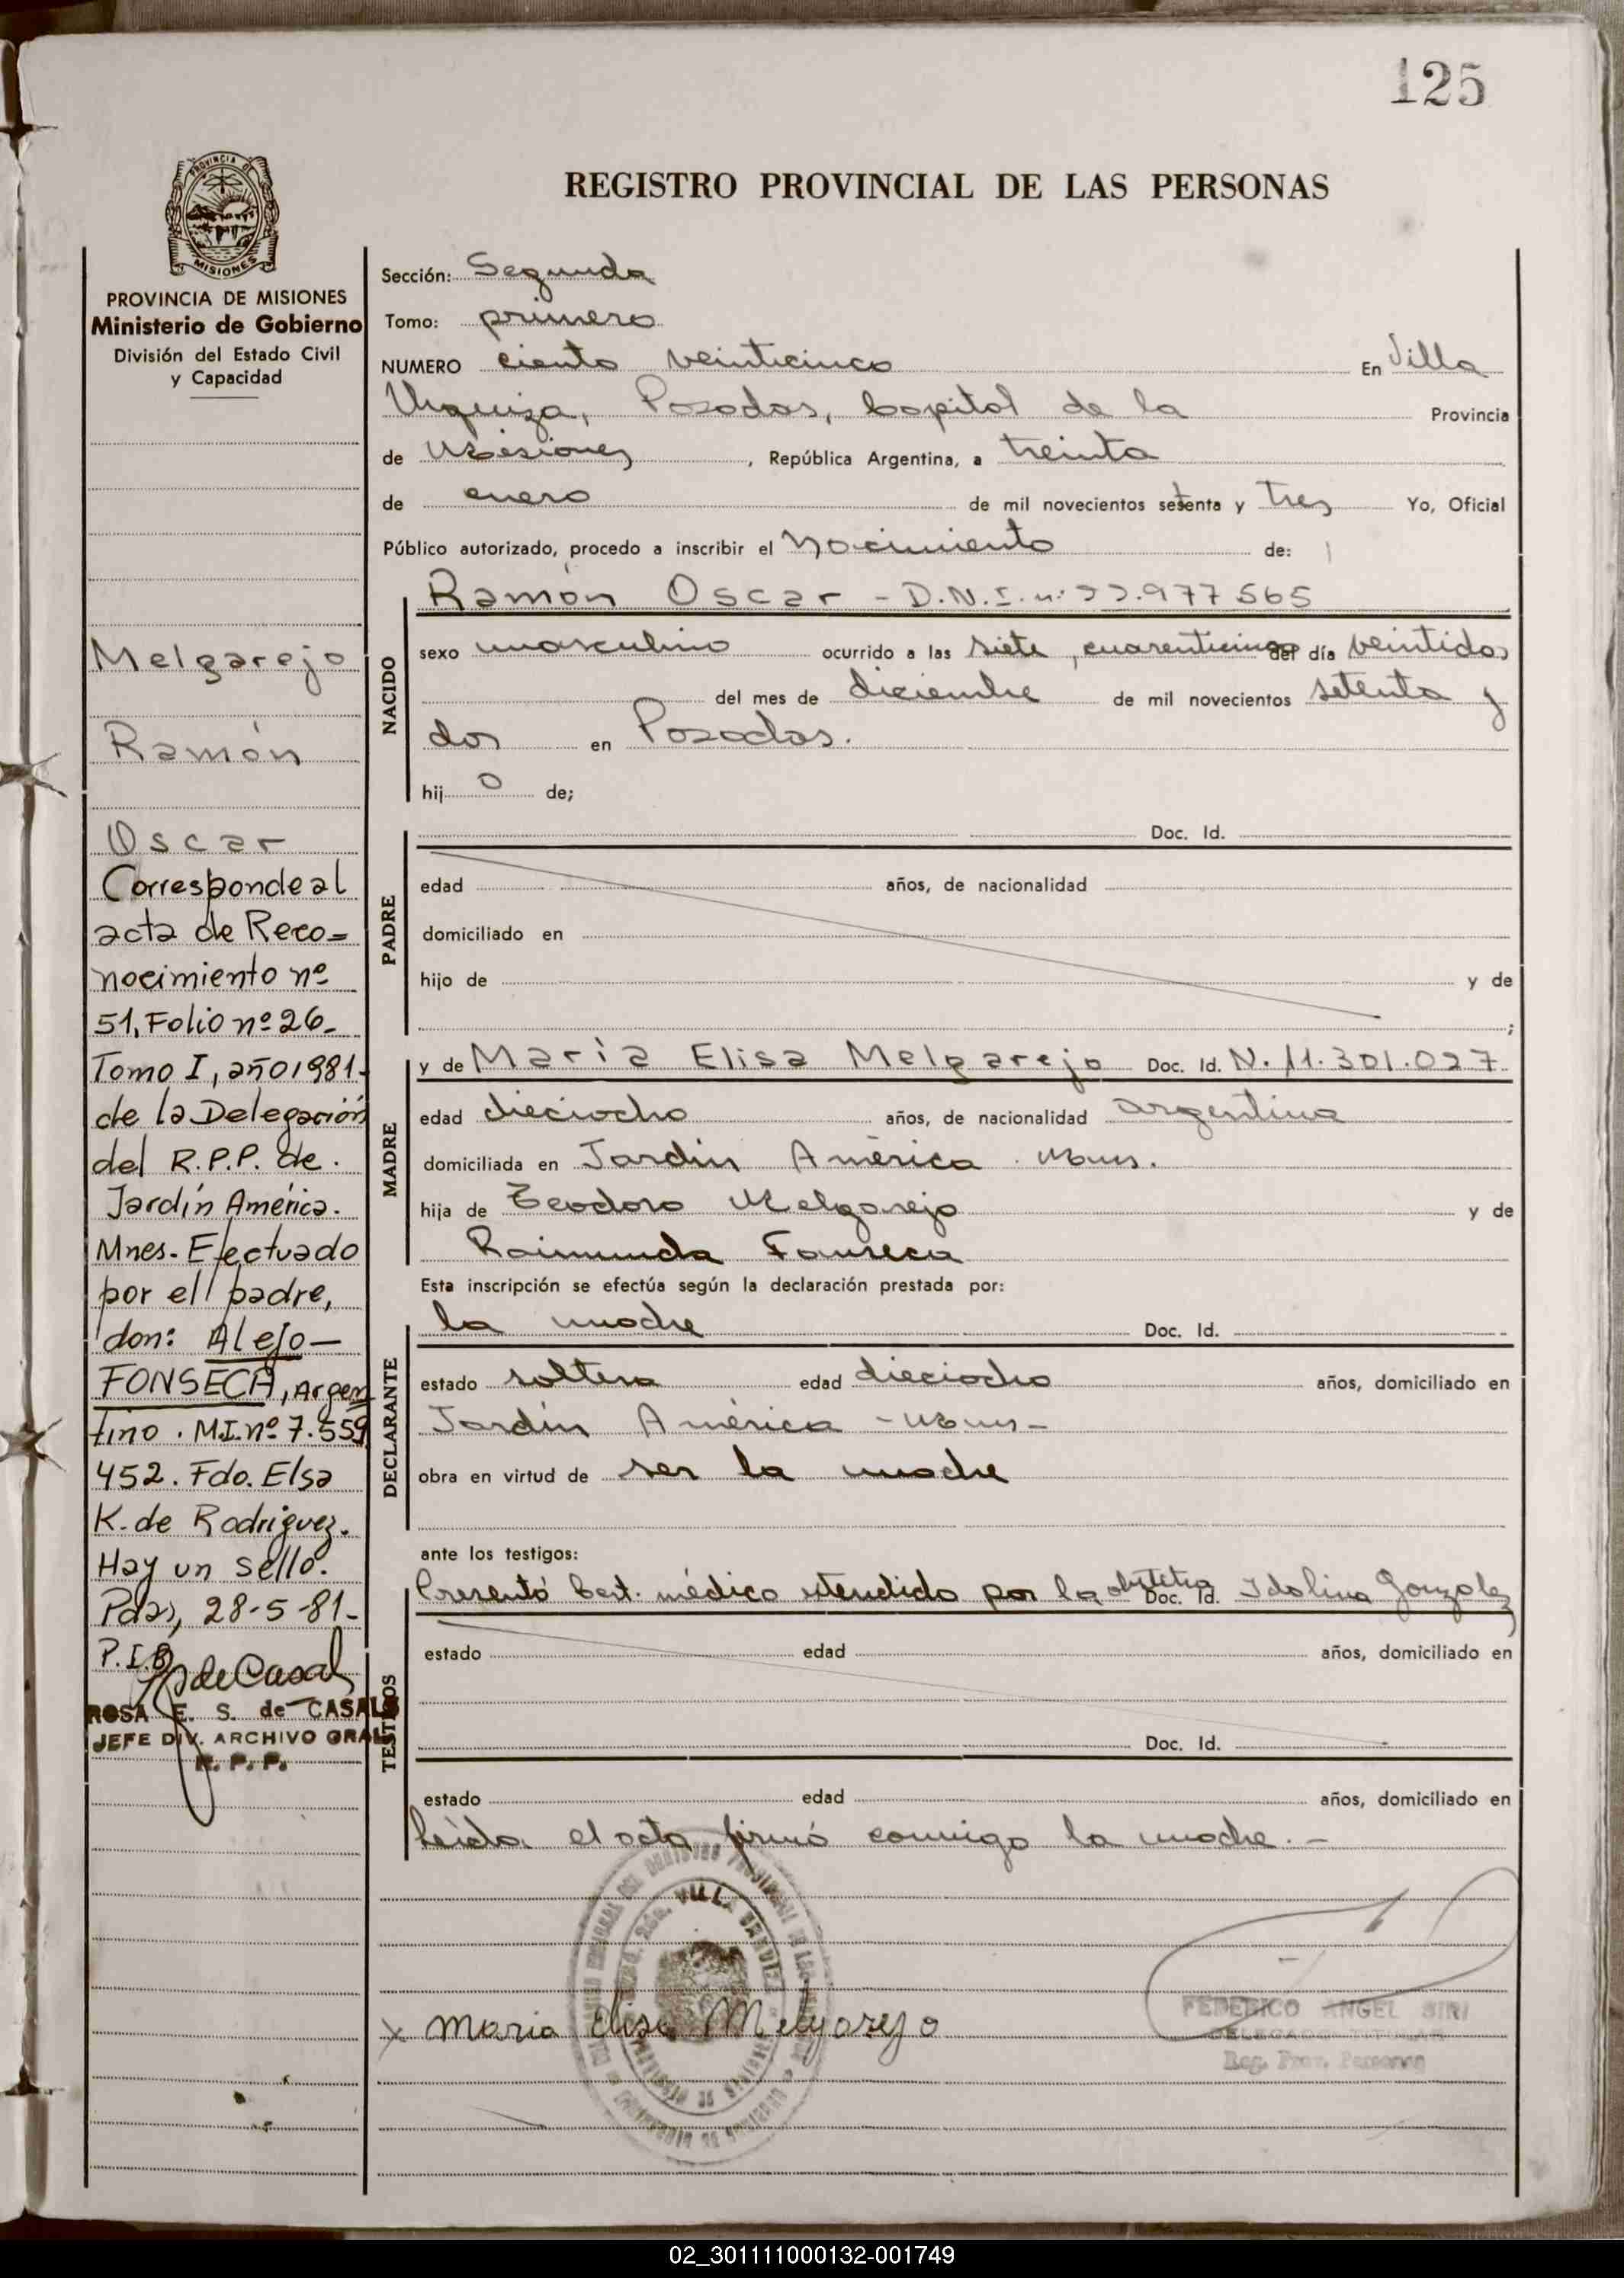 125
REGISTRO PROVINCIAL DE LAS PERSONAS
PROVINCIA DE
MISIONES
PROVINCIA DE MISIONES
Ministerio de Gobierno
División del Estado Civil
y Capacidad
Melgarejo
Ramón
Oscar
Corresponde al
acta de Reco=
nocimiento nº
51, Folio nº 26-
Tomo I, año 1981-
de la Delegación
del R.P.P. de.
Jardín América.
Mnes. Efectuado
por el padre,
don: Alejo-
FONSECA, Argen
tino. M.I. nº 7.559
452. Fdo. Elsa
K. de Rodriguez.
Hay un sello.
Pdas, 28-5-81-
P.I.B.
ROSA E. S. de CASALS
JEFE DIV. ARCHIVO GRAL
R. P. P.
Sección: Segunda
Tomo: primero
NUMERO ciento veinticinco En Villa
Urquiza, Posadas, Capital de la Provincia
de Misiones, República Argentina, a treinta
de enero de mil novecientos setenta y tres Yo, Oficial
Público autorizado, procedo a inscribir el Nacimiento de:
NACIDO
Ramón Oscar - D.N.I. n: 22.977565
sexo masculino ocurrido a las siete, cuarenticinco del día veintidos
del mes de diciembre de mil novecientos setenta y
dos en Posadas.
hij o de;
PADRE
Doc. Id.
edad años, de nacionalidad
domiciliado en
hijo de y de
;
MADRE
y de María Elisa Melgarejo Doc. Id. N. 11.301.027
edad dieciocho años, de nacionalidad argentina
domiciliada en Jardín América. Mnes.
hija de Teodoro Melgarejo y de
Raimunda Fonseca
Esta inscripción se efectúa según la declaración prestada por:
DECLARANTE
la madre Doc. Id.
estado soltera edad dieciocho años, domiciliado en
Jardín América - Mnes-
obra en virtud de ser la madre
ante los testigos:
TESTIGOS
Presentó Cert. médico extendido por la obstetra Doc. Id. Idolina Gonzalez
estado edad años, domiciliado en
Doc. Id.
estado edad años, domiciliado en
Leída el acta, firmó conmigo la madre.-
VILLA URQUIZA
x Maria Elisa Melgarejo
FEDERICO ANGEL SIRI
DELEGADO TITULAR
Reg. Prov. Personas
02_301111000132-001749